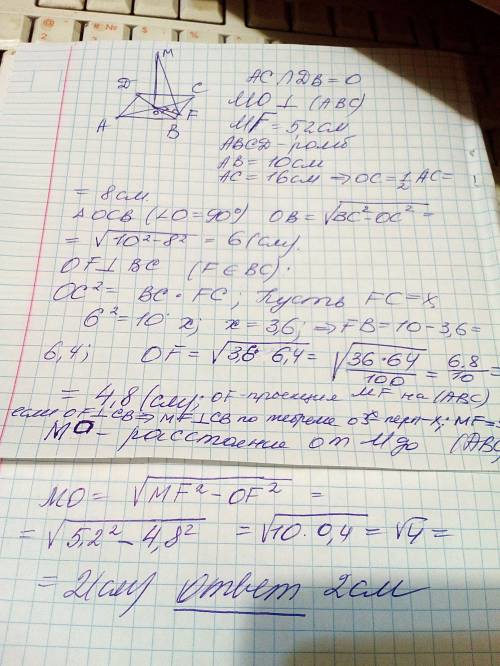 M
D C
A B F
AC ∩ DB = O
MO ⊥ (ABC)
MF = 52см
ABCD - ромб
AB = 10см
AC = 16см ⇒ OC = 1/2 AC =
= 8см.
Δ OCB (∠O = 90°) OB = √BC² - OC² =
= √10² - 8² = 6 (см).
OF ⊥ BC (F ∈ BC).
OC² = BC · FC; Пусть FC = x,
6² = 10 · x; x = 3,6; ⇒ FB = 10 - 3,6 =
6,4; OF = √3,6 · 6,4 = √36 · 64/100 = 6,8/10 =
= 4,8 (см); OF - проекция MF на (ABC)
если OF ⊥ CB ⇒ MF ⊥ CB по теореме о 3х перп-х; MF =
MO - расстояние от M до (ABC
MO = √MF² - OF² =
= √5,2² - 4,8² = √10 · 0,4 = √4 =
= 2 (см) ответ 2см